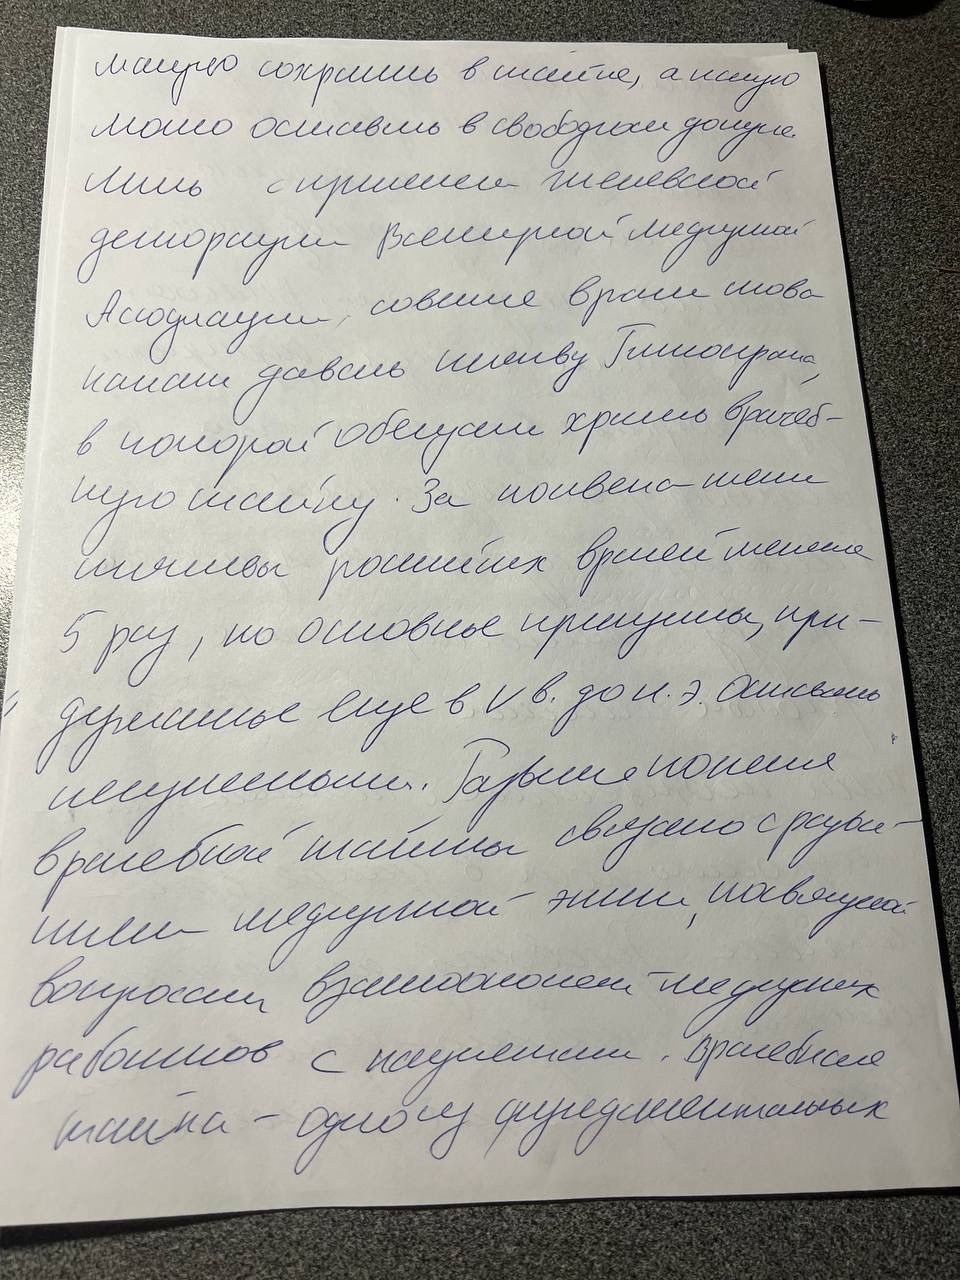 сохранить в тайне, а какую
можно оставить в свободном доступе
Лишь с принятием Женевской
декларации Всемирной Медицинской
Ассоциации, советские врачи снова
начали давать клятву Гиппократа,
в которой обещали хранить врачеб-
ную тайну. За полвека текст
клятвы российских врачей менялся
5 раз, но основные принципы, при-
думанные еще в V в. до н. э. остались
неизменными. Развитие понятия
врачебной тайны связано с разви-
тием медицинской этики, посвященной
вопросам взаимоотношений медицинских
работников с пациентами. Врачебная
тайна - одно из фундаментальных